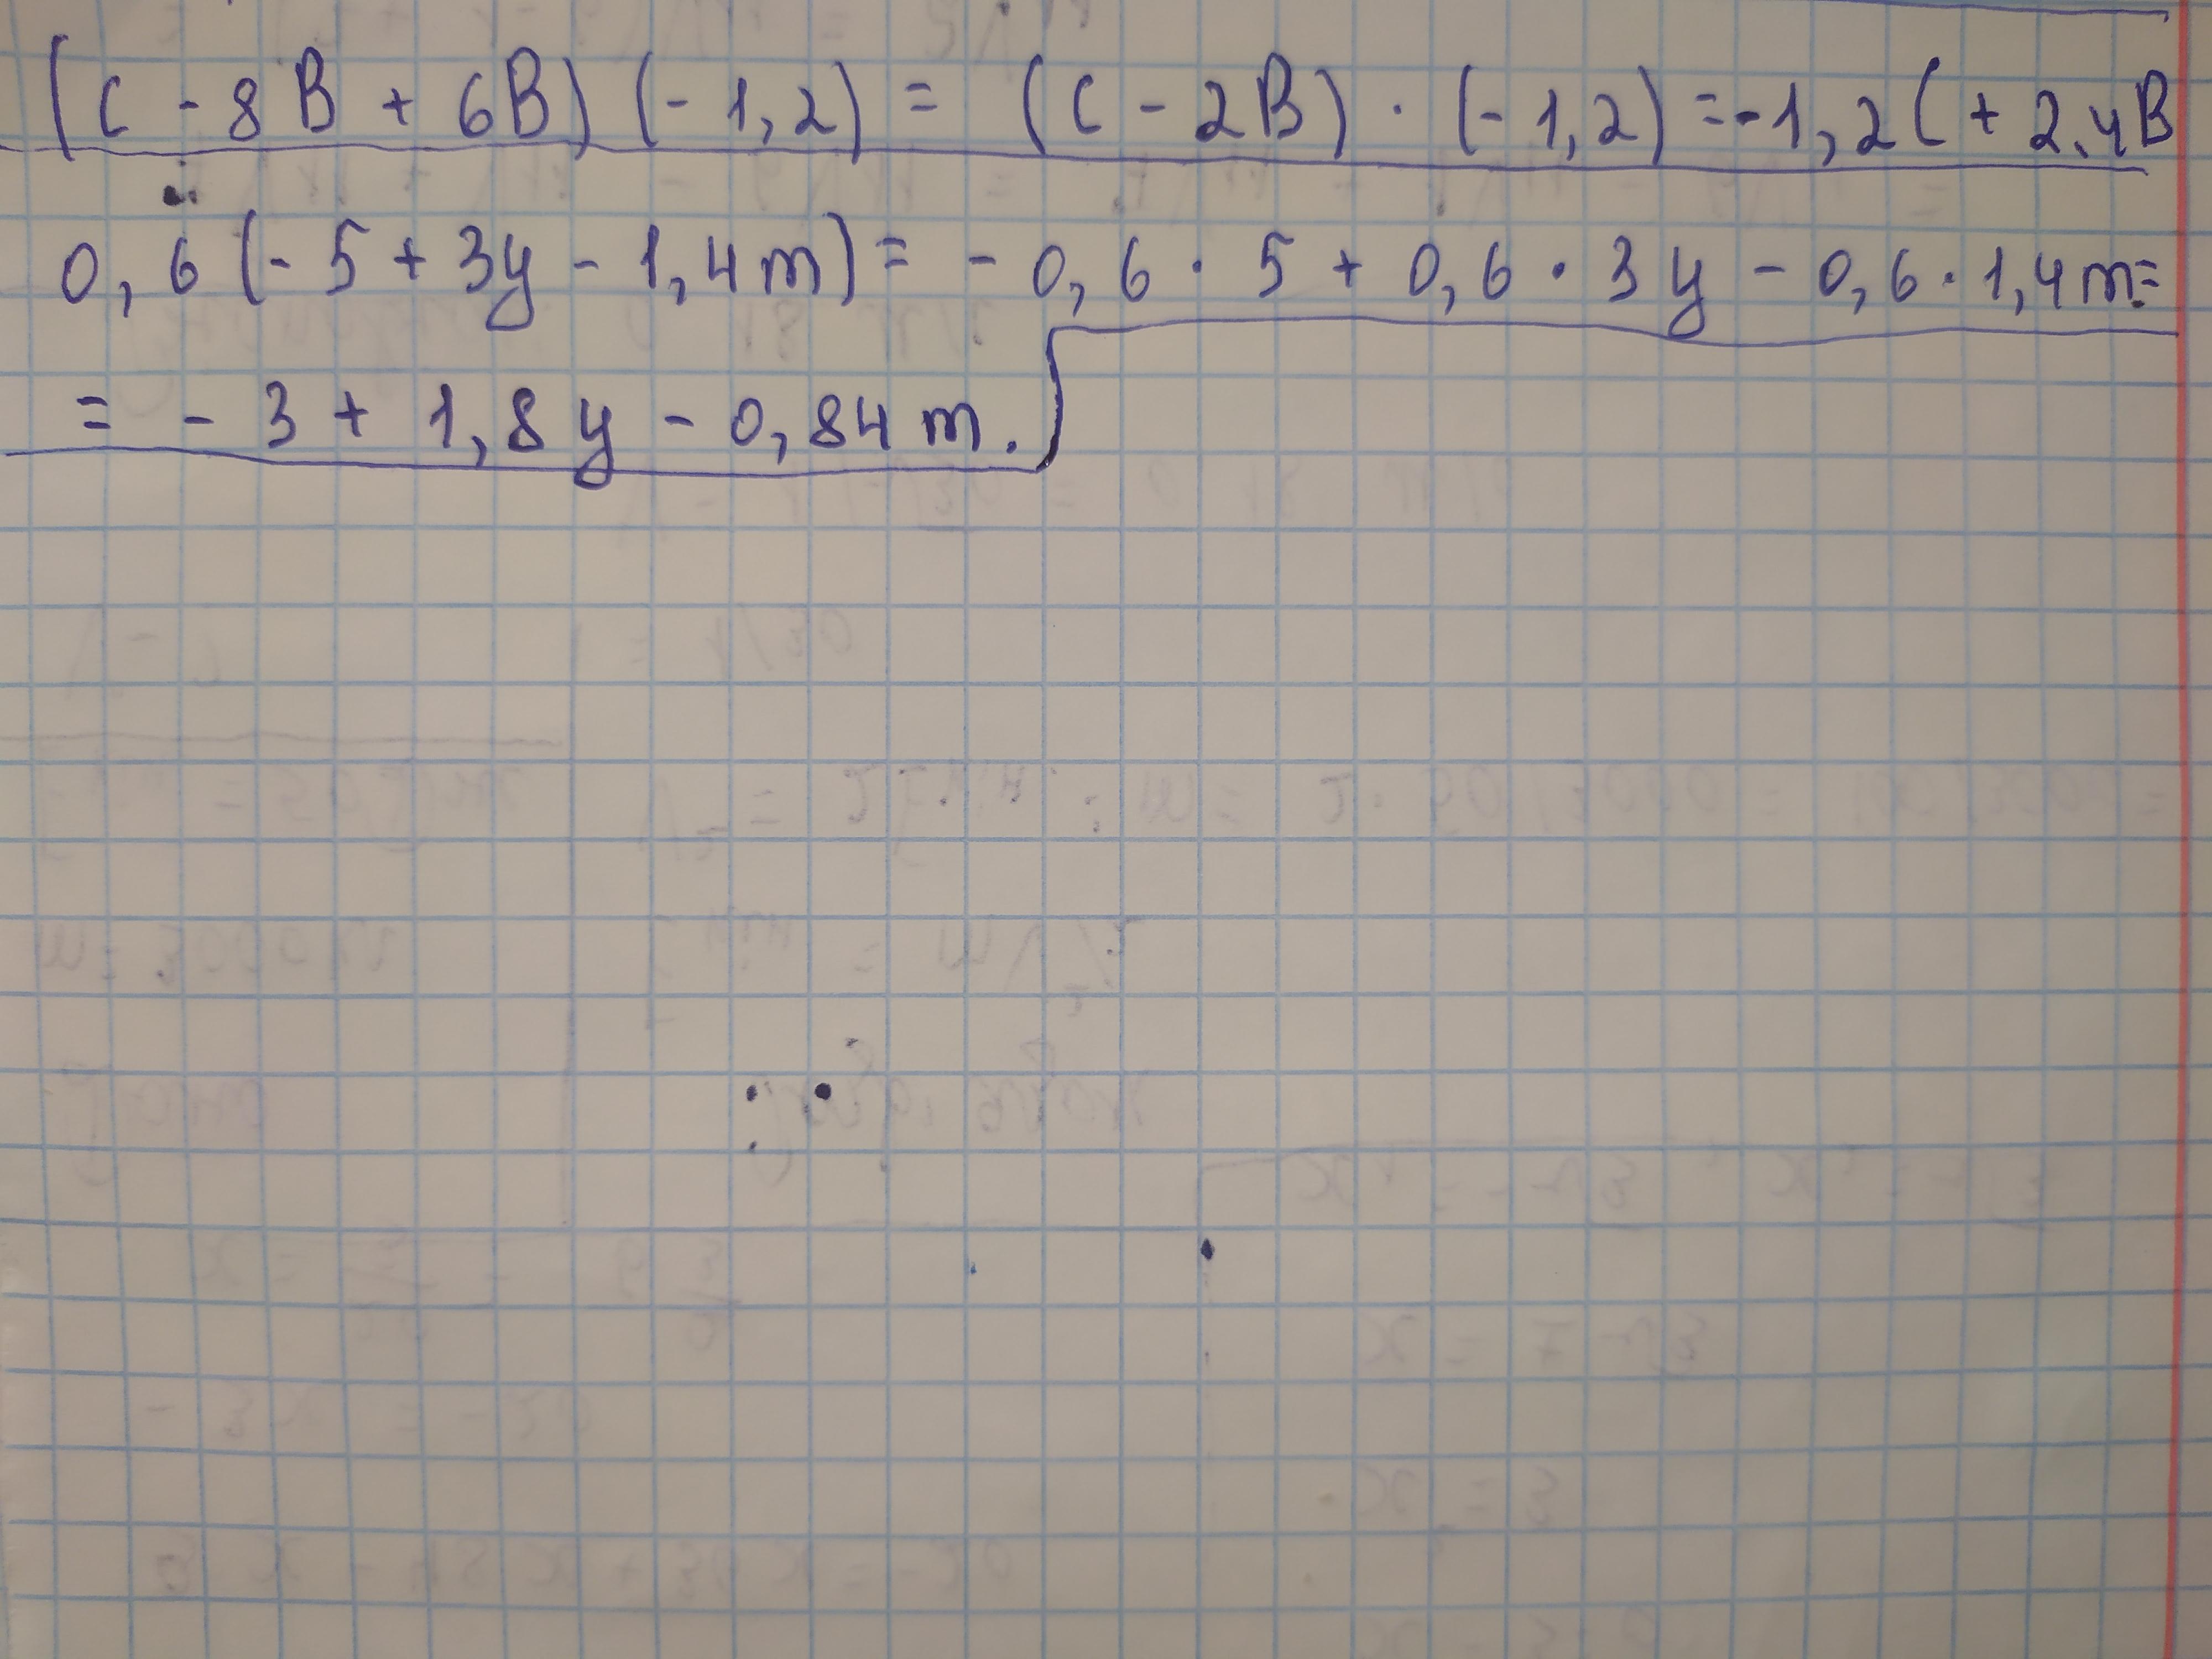 (c - 8B + 6B) (- 1,2) = (c - 2B) · (- 1,2) = -1,2c + 2,4B
0,6 (- 5 + 3y - 1,4m) = - 0,6 · 5 + 0,6 · 3y - 0,6 · 1,4m =
= - 3 + 1,8y - 0,84m.